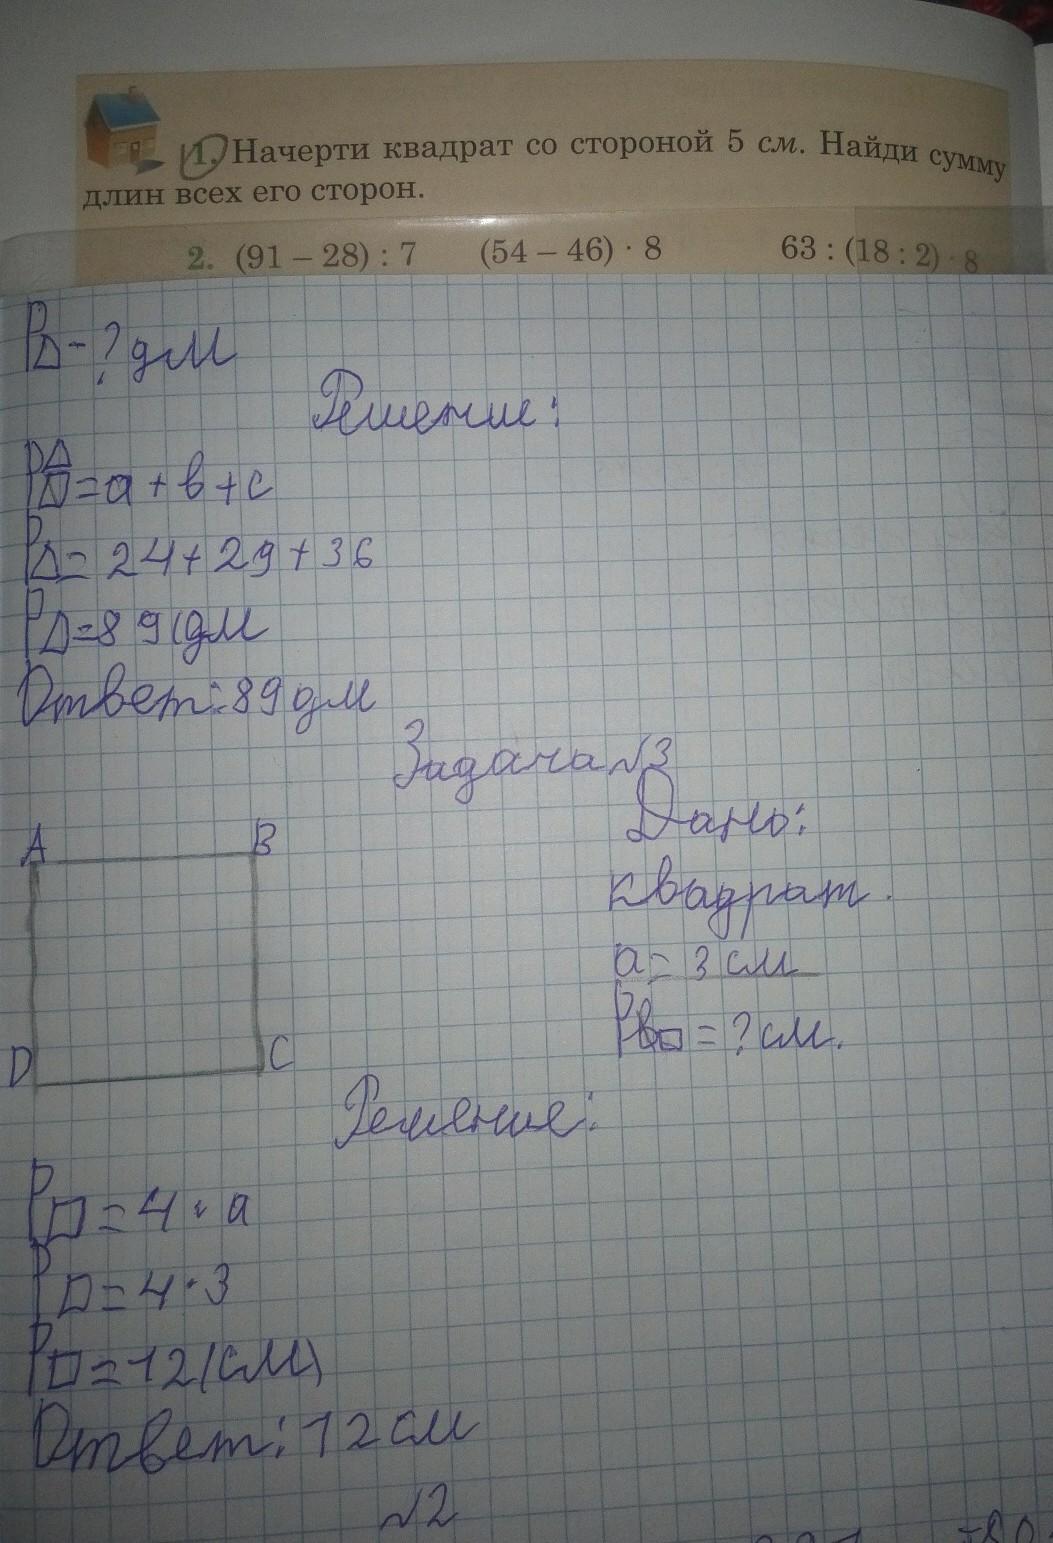 1. Начерти квадрат со стороной 5 см. Найди сумму
длин всех его сторон.
2. (91 – 28) : 7 (54 – 46) · 8 63 : (18 : 2) · 8
P△-? дм
Решение:
P△=а+в+с
P△=24+29+36
P△=89(дм
Ответ:89дм
Задача №3
Дано:
A B
квадрат.
а= 3 см
D C
Pв□=? см.
Решение:
P□=4·а
P□=4·3
P□=12(см)
Ответ: 12см
№2